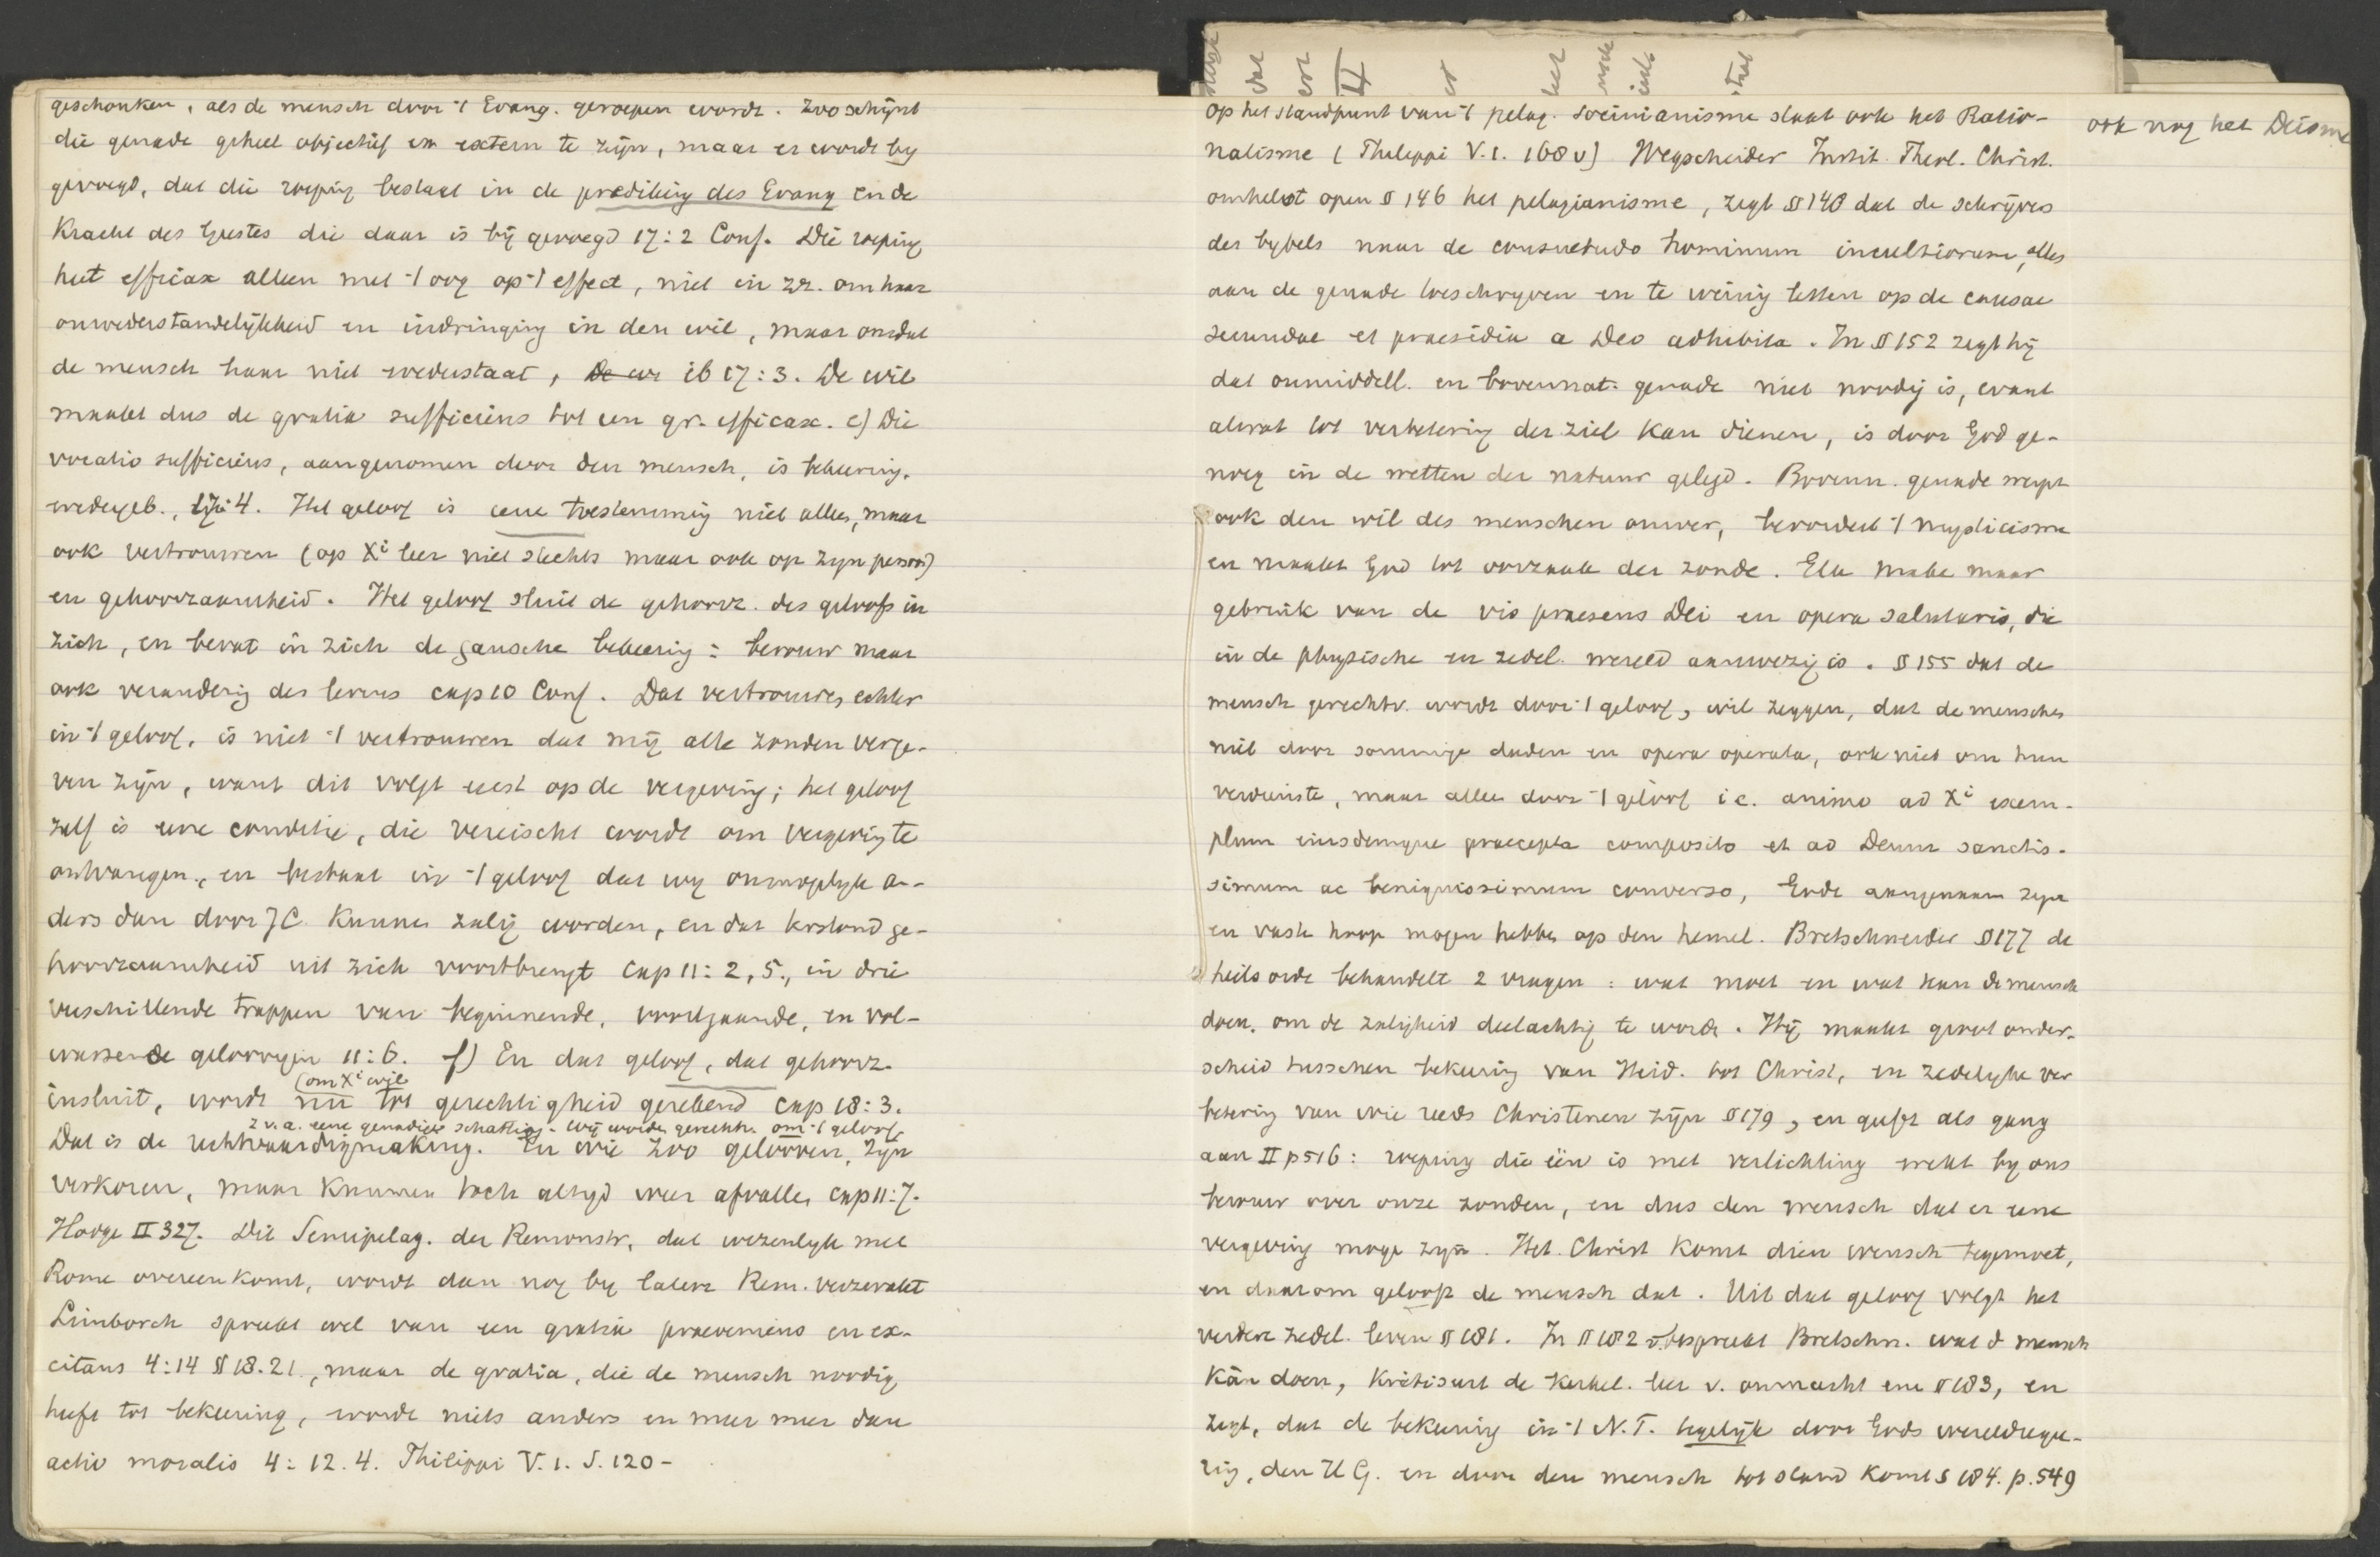 geschonken, als de mensch door 't Evang. geroepen wordt. Zoo schijnt
die genade geheel objectief en extern te zijn, maar er wordt by
gevoegd, dat die roeping bestaat in de prediking des Evang en de
Kracht des Geestes die daar is bij gevoegd 17:2 Conf. Die roeping
heet efficax alleen met 't oog op 't effect, niet in zz. om haar
onwederstandelijkheid en indringing in den wil, maar omdat
de mensch haar niet wederstaat, ib 17:3. De wil
maakt dus de gratia sufficiens tot een gr. efficax. e) Die
vocatio sufficiens, aangenomen door den mensch, is bekeering,
wedergeb., 17:4. Het geloof is eene toestemming niet alleen, maar
ook vertrouwen (op Xi leer niet slechts maar ook op zyn persoon)
en gehoorzaamheid. Het geloof sluit de gehoorz. des geloofs in
zich, en bevat in zich de gansche bekeering: berouw maar
ook verandering des levens cap 10 Conf. Dat vertrouwen echter
in 't geloof, is niet 't vertrouwen dat mij alle zonden verge-
ven zijn, want dit volgt eerst op de vergeving; het geloof
zelf is eene conditie, die vereischt wordt om vergeving te
ontvangen, en bestaat in 't geloof dat wy onmogelyk an-
ders dan door JC kunnen zalig worden, en dat terstond ge-
hoorzaamheid uit zich voortbrengt cap 11:2,5., in drie
verschillende trappen van beginnende, voortgaande, en vol-
wassende geloovigen 11:6. f) En dat geloof, dat gehoorz.
(om Xi wil
insluit, wordt nu tot gerechtigheid gerekend cap 18:3.
z.v.a. eene genadige schatting. Wij worden gerechtv. om 't geloof.
Dat is de rechtvaardigmaking. En wie zoo gelooven, zyn
verkoren, maar kunnen toch altyd weer afvallen cap 11:7.
Hodge II 327. Dit Semipelag. der Remonstr, dat wezenlyk met
Rome overeenkomt, wordt dan nog by latere Rem. verzwakt
Limborch spreekt wel van een gratia praeveniens en ex-
citans 4:14 § 18.21., maar de gratia, die de mensch noodig
heeft tot bekeering, wordt niets anders en meer meer dan
actio moralis 4:12.4. Philippi V.1. S.120-
Op het standpunt van 't pelag. Socinianisme staat ook het Ratio-
ook nog het Deisme
nalisme (Philippi V.1. 168 v) Wegscheider Instit. Theol. Christ.
omhelst open § 146 het pelagianisme, zegt § 148 dat de schrijvers
des bybels naar de consuetudo hominum incultiorum, alles
aan de genade toeschryven en te weinig letten op de causae
secundae et praesidia a Deo adhibita. In § 152 zegt hij
dat onmiddell. en bovennat. genade niet noodig is, want
alwat tot verbetering der ziel kan dienen, is door God ge-
noeg in de wetten der natuur gelegd. Bovenn. genade werpt
ook den wil des menschen omver, bevordert 't mysticisme
en maakt God tot oorzaak der zonde. Elk make maar
gebruik van de vis praesens Dei en opera salutaris, die
in de physische en zedel. wereld aanwezig is. § 155 dat de
mensch gerechtv. wordt door 't geloof, wil zeggen, dat de menschen
niet door sommige daden en opera operata, ook niet om hun
verdienste, maar alleen door 't geloof i.e. animo ad Xi exem-
plum eiusdemque praecepta composito et ad Deum sanctis-
simum ac benignissimum converso, Gode aangenaam zyn
en vaste hoop mogen hebben op den hemel. Bretschneider § 177 de
heilsorde behandelt 2 vragen: wat moet en wat kan de mensch
doen, om de zaligheid deelachtig te worden. Hij maakt groot onder-
scheid tusschen bekeering van Heid. tot Christ, en zedelyke ver
betering van wie reeds Christenen zijn § 179, en geeft als gang
aan II p 516: roeping die één is met verlichting wekt by ons
berouw over onze zonden, en dus den wensch dat er eene
vergeving moge zyn. Het Christ komt dien wensch tegemoet,
en daarom gelooft de mensch dat. Uit dat geloof volgt het
verdere zedel. leven § 181. In § 182 v. bespreekt Bretschn. wat d mensch
kan doen, kritiseert de kerkel. leer v. onmacht enz § 183, en
zegt, dat de bekeering in 't N.T. tegelijk door Gods wereldrege-
ring, den H G. en door den mensch tot stand komt § 184. p. 549